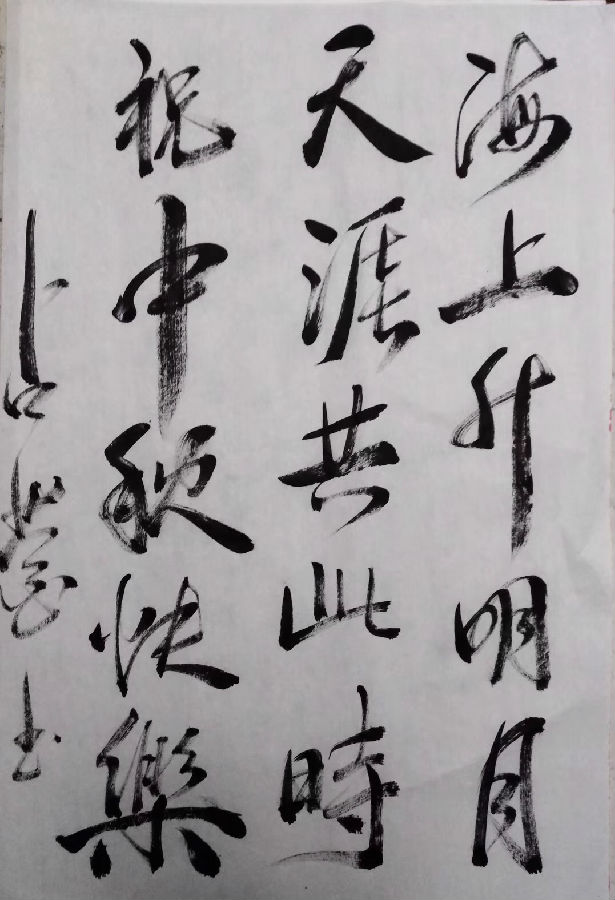 海上升明月
天涯共此時
祝中秋快樂
占書